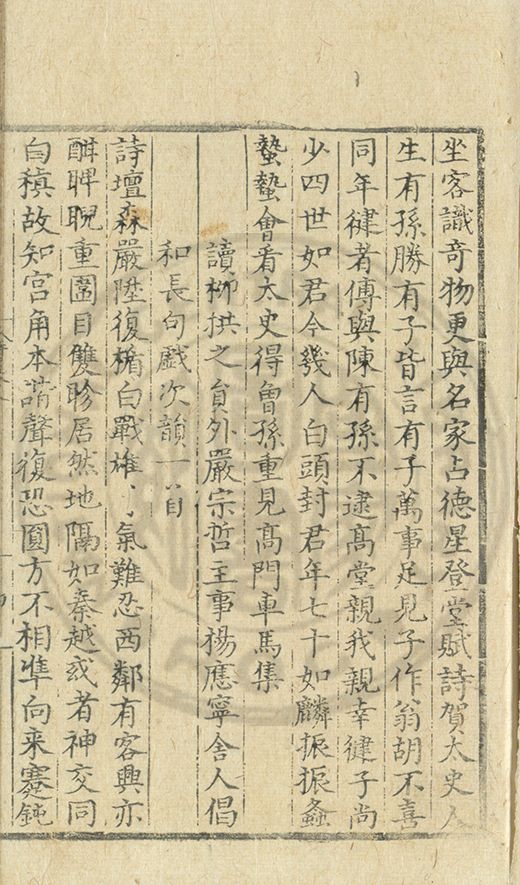 坐客識奇物更與名家占德星登堂賦詩賀太史人
生有孫勝有子皆言有子萬事足見子作翁胡不喜
同年健者傅與陳有孫不逮髙堂親我親幸健子尚
少四世如君今幾人白頭封君年七十如麟振振螽
蟄蟄會看太史得曽孫重見髙門車馬集
讀柳拱之貟外嚴宗哲主事楊應寧舍人倡
和長句戯次韻一首
詩壇森嚴陞復楯白戰雄氣難忍西鄰有客興亦
酣睥睨重圍目雙眕居然地隔如秦越或者神交同
白稹故知宫角本諧聲復恐圓方不相凖向来蹇鈍